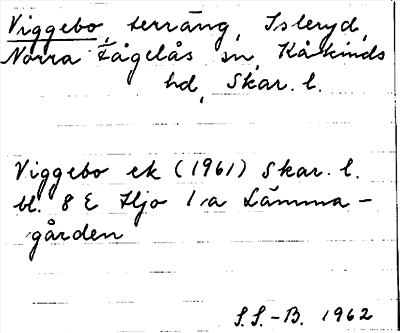 Viggebo, terräng, Isleryd,
Norra Fågelås sn, Kåkinds
hd, Skar. l.
Viggebo ek (1961) Skar. l.
bl. 8 E Hjo 1:a Lämma-
gården
S.S.-B. 1962